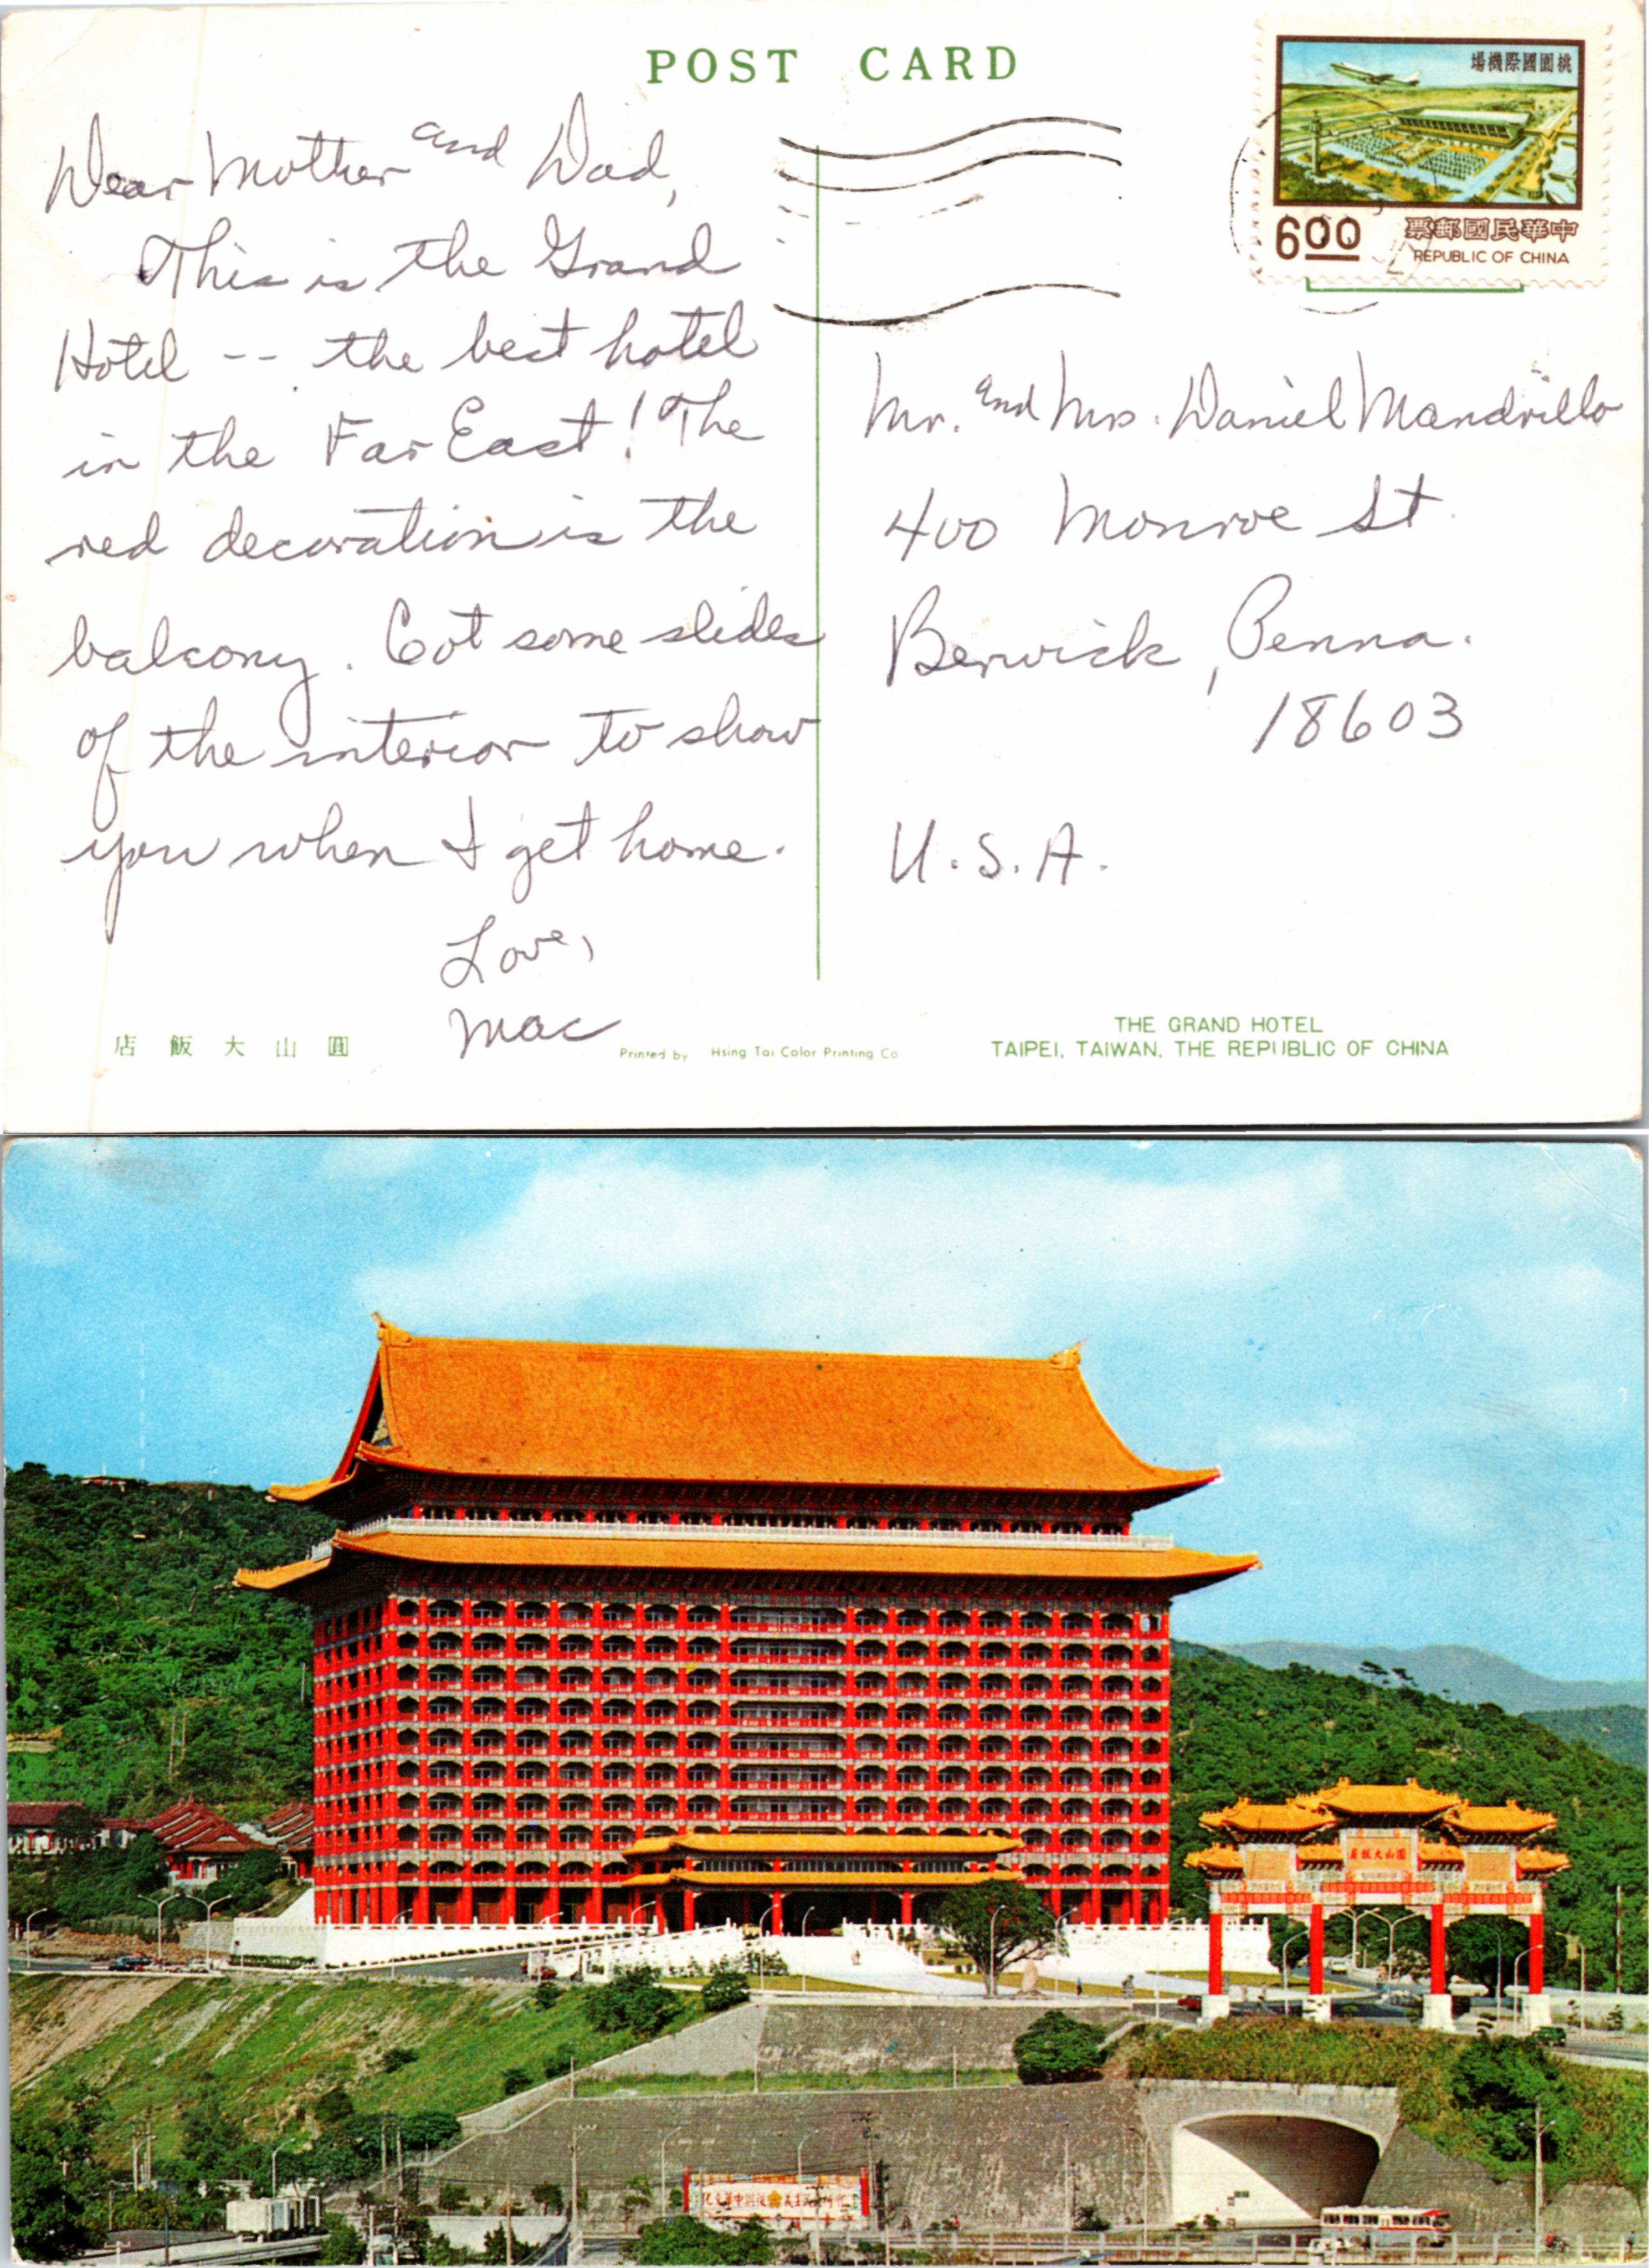 POST CARD
桃園國際機場
6.00
中華民國郵票
REPUBLIC OF CHINA
Dear Mother and Dad,
This is the Grand
Hotel -- the best hotel
in the Far East! The
red decoration is the
balcony. Got some slides
of the interior to show
you when I get home.
Love,
Mac
Mr. and Mrs. Daniel Mandrillo
400 Monroe St.
Berwick, Penna.
18603
U.S.A.
圓山大飯店
Printed by Hsing Tai Color Printing Co
THE GRAND HOTEL
TAIPEI, TAIWAN, THE REPUBLIC OF CHINA
圓山大飯店